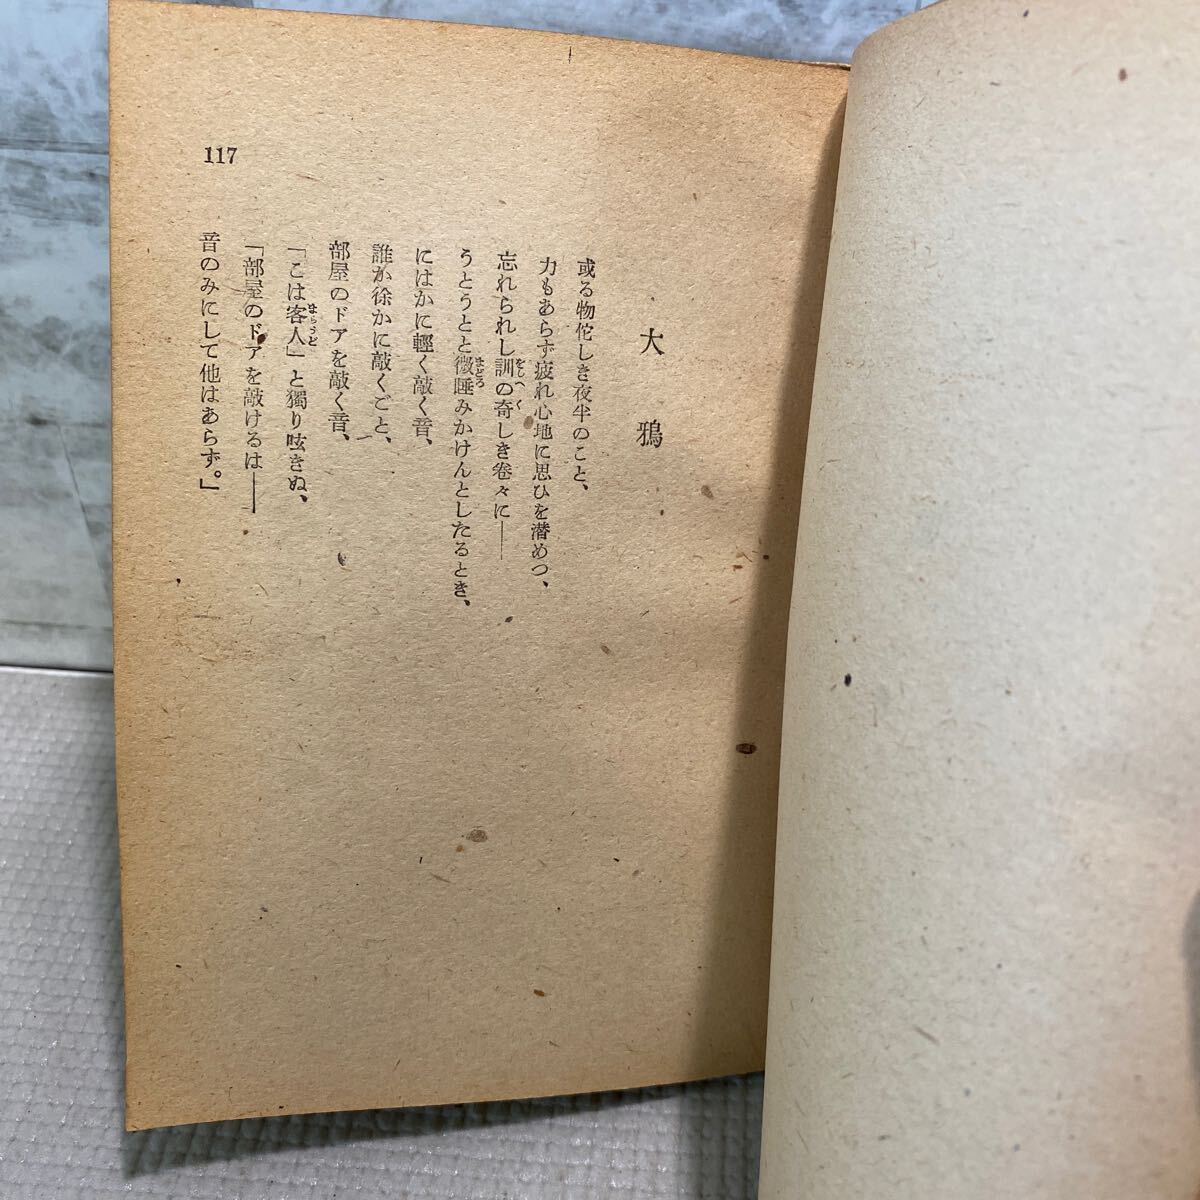 大鴉
或る物佗しき夜半のこと、
力もあらず疲れ心地に思ひを潜めつ、
忘れられし訓の奇しき卷々に──
うとうとと微睡みかけんとしたるとき、
にはかに輕く敲く音、
誰か徐かに敲くごと、
部屋のドアを敲く音、
「こは客人」と獨り呟きぬ、
「部屋のドアを敲けるは──
音のみにして他はあらず。」
117